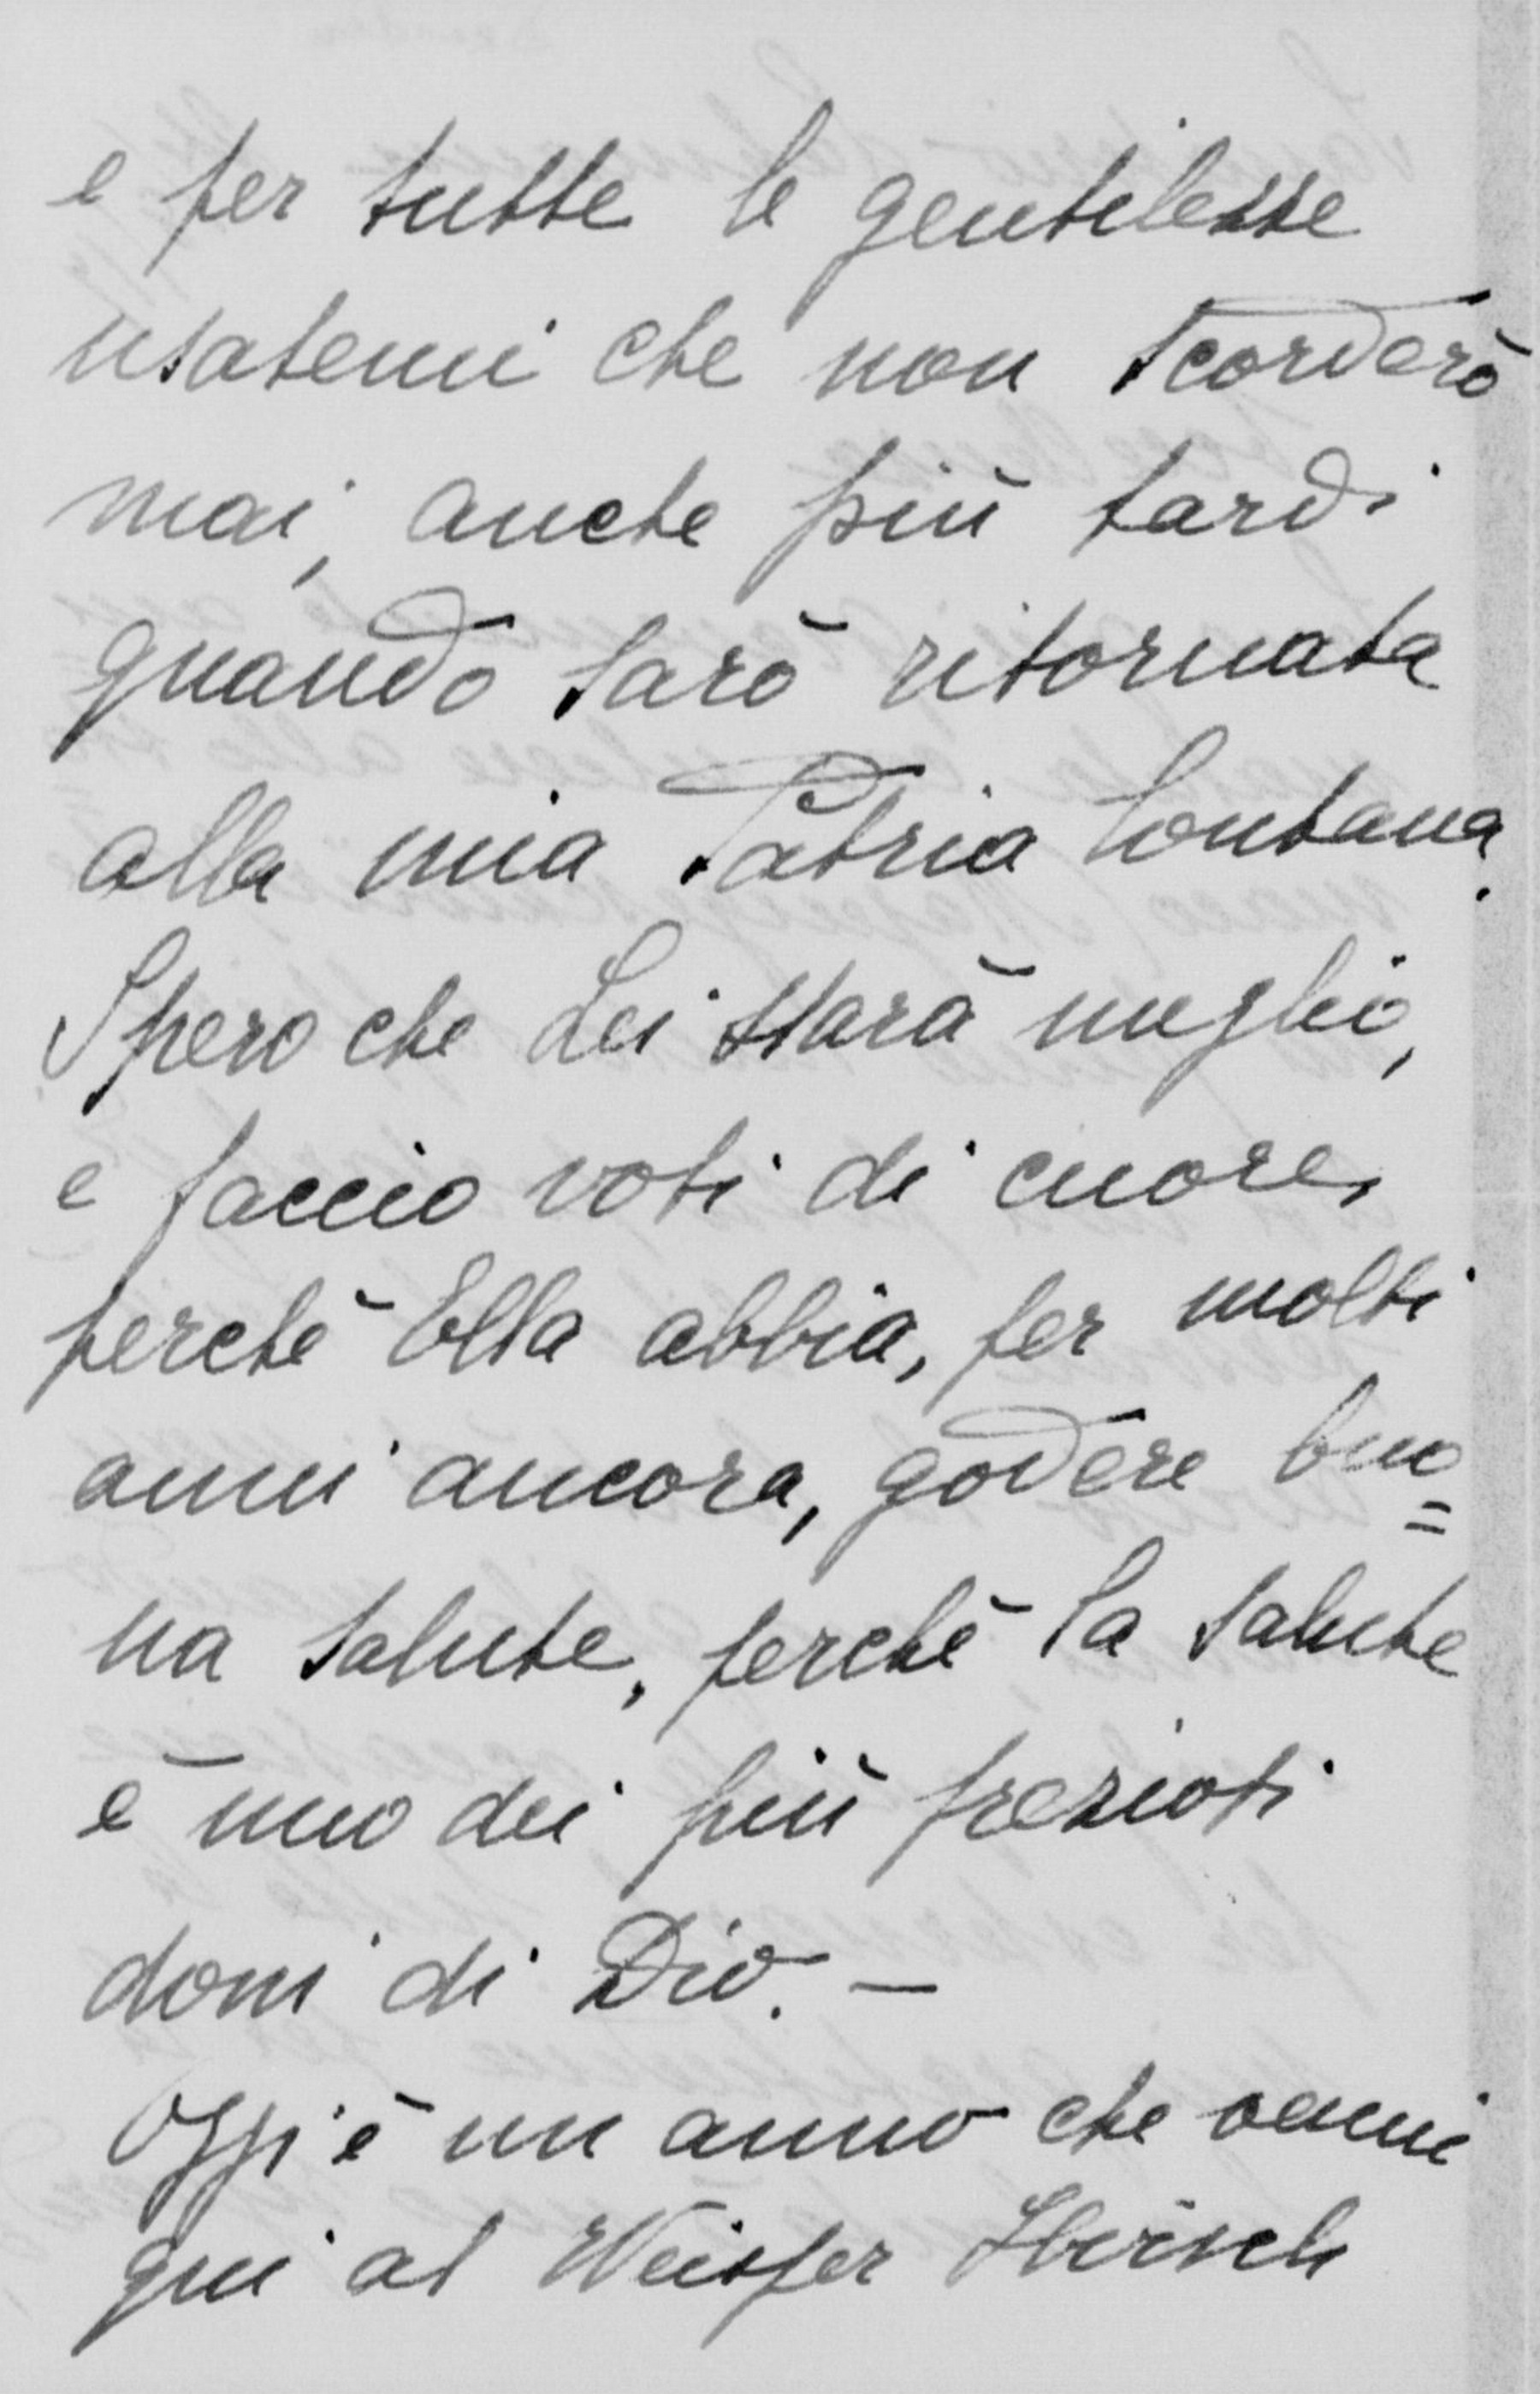 e per tutte le gentilezze
usatemi che non scorderò
mai, anche più tardi
quando sarò ritornata
alla mia Patria lontana.
Spero che Lei starà meglio,
e faccio voti di cuore,
perchè Ella abbia, per molti
anni ancora, godere buo=
na salute, perchè la salute
è uno dei più preziosi
doni di Dio. —
Oggi è un anno che venni
qui al Weisser Hirsch